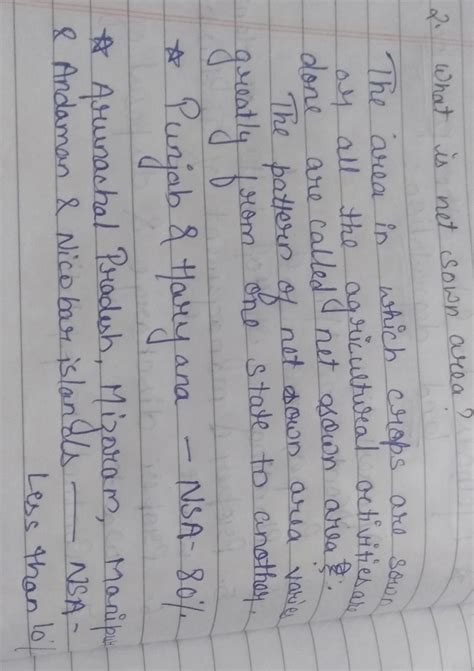 2. What is net sown area?
The area in which crops are sown
or all the agricultural activities are
done are called net sown area.
The pattern of net sown area varies
greatly from one state to another.
☆ Punjab & Haryana - NSA - 80%
☆ Arunachal Pradesh, Mizoram, Manipur
& Andaman & Nicobar islands — NSA -
Less than 10%